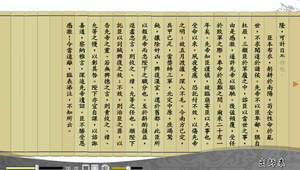 隆，可計日
臣本布衣，躬耕於南陽，苟全性命於亂
世，不求聞達於諸侯。先帝不以臣卑鄙，猥自
枉屈，三顧臣於草廬之中，諮臣以當世之事，
由是感激，遂許先帝以驅馳。後值傾覆，受任
於敗軍之際，奉命於危難之間，爾來二十有一
年矣。先帝知臣謹慎，故臨崩寄臣以大事也。
受命以來，夙夜憂嘆，恐託付不效，以傷先帝
之明。故五月渡瀘，深入不毛。今南方已定，
兵甲已足，當獎帥三軍，北定中原，庶竭駑
鈍，攘除奸凶，興復漢室，還於舊都。此臣所
以報先帝而忠陛下之職分也。至於斟酌損益，
進盡忠言，則攸之、禕、允之任也。願陛下
託臣以討賊興復之效；不效，則治臣之罪，以
告先帝之靈。若無興德之言，則責攸之、禕、
允等之慢，以彰其咎。陛下亦宜自課，以諮諏
善道，察納雅言，深追先帝遺詔，臣不勝受恩
感激！今當遠離，臨表涕泣，不知所云。
出師表